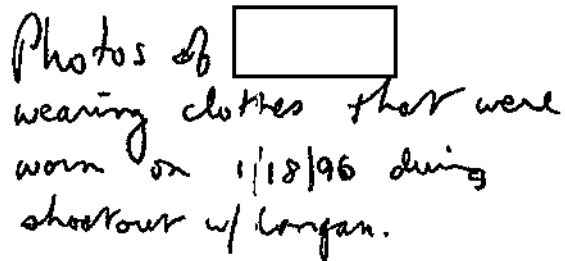 Photos of
wearing clothes that were
worn on 1/18/96 during
shootout w/ Langan.